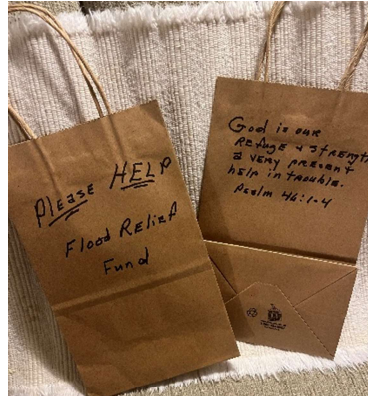 Please HELP
Flood Relief
Fund
God is our
Refuge & strength
a very present
help in trouble.
Psalm 46:1-4